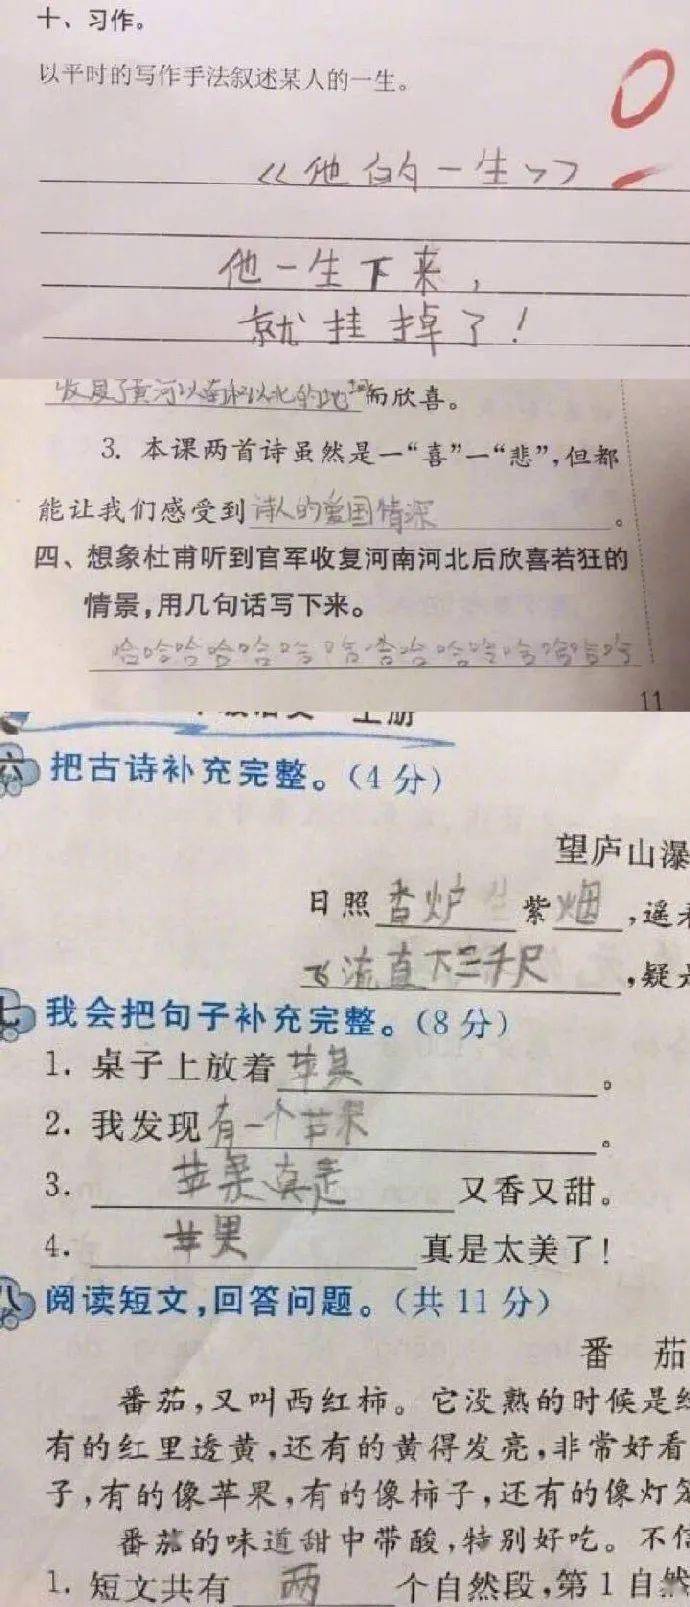 十、习作。
以平时的写作手法叙述某人的一生。
0
《他的一生》
他一生下来，
就挂掉了！
收复了黄河以南和以北的地而欣喜。
3. 本课两首诗虽然是一“喜”一“悲”，但都
能让我们感受到诗人的爱国情深。
四、想象杜甫听到官军收复河南河北后欣喜若狂的
情景，用几句话写下来。
哈哈哈哈哈哈哈哈哈哈哈哈哈哈哈
11
上册
六 把古诗补充完整。（4 分）
望庐山瀑
日照香炉生紫烟，遥看
飞流直下三千尺，疑是
七 我会把句子补充完整。（8 分）
1. 桌子上放着苹果。
2. 我发现有一个苹果。
3. 苹果真是又香又甜。
4. 苹果真是太美了！
八 阅读短文，回答问题。（共 11 分）
番 茄
番茄，又叫西红柿。它没熟的时候是
有的红里透黄，还有的黄得发亮，非常好看
子，有的像苹果，有的像柿子，还有的像灯笼
番茄的味道甜中带酸，特别好吃。不信
1. 短文共有两个自然段，第 1 自然